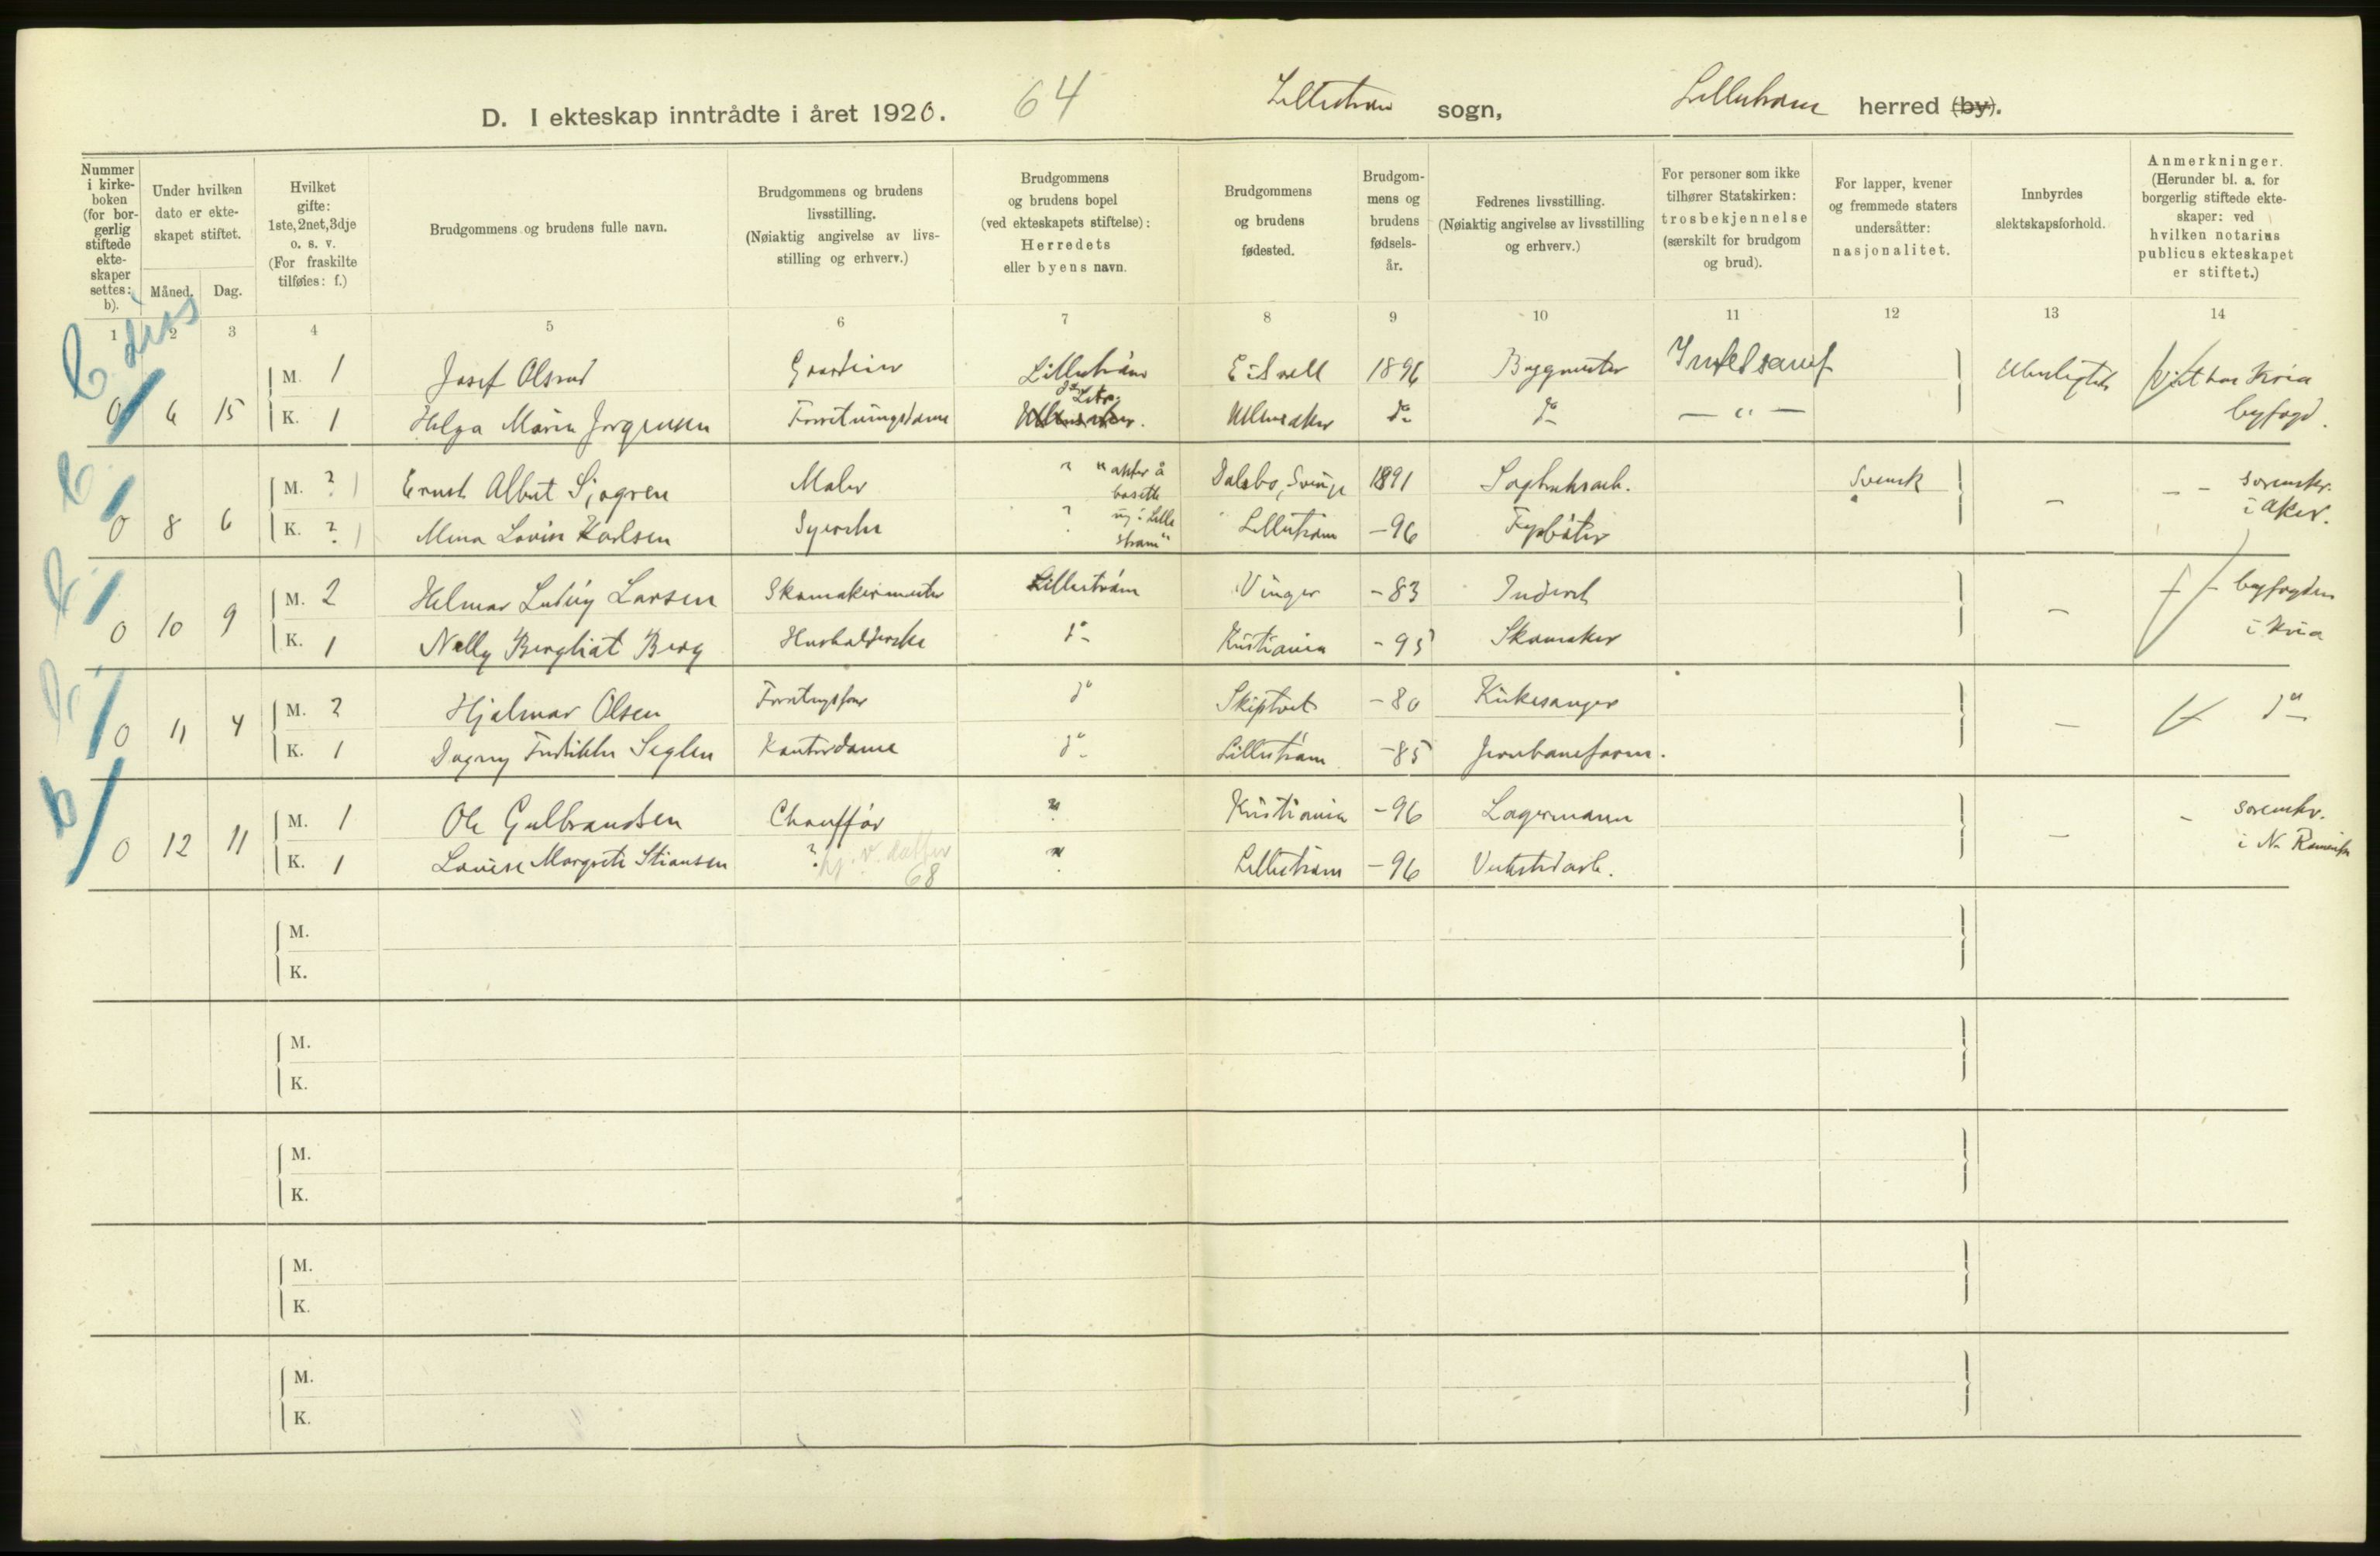 D. I ekteskap inntrådte i året 1920. 64 Lillestrøm sogn, Lillestrøm herred (by).
Nummer i kirke-boken (for bor-gerlig stiftede ekte-skaper settes: b).
Under hvilken dato er ekte-skapet stiftet.
Måned. Dag.
Hvilket gifte: 1ste, 2net, 3dje o. s. v. (For fraskilte tilføies: f.)
Brudgommens og brudens fulle navn.
Brudgommens og brudens livsstilling. (Nøiaktig angivelse av livs-stilling og erhverv.)
Brudgommens og brudens bopel (ved ekteskapets stiftelse): Herredets eller byens navn.
Brudgommens og brudens fødested.
Brudgom-mens og brudens fødsels-år.
Fedrenes livsstilling. (Nøiaktig angivelse av livsstilling og erhverv.)
For personer som ikke tilhører Statskirken: trosbekjennelse (særskilt for brudgom og brud).
For lapper, kvener og fremmede staters undersåtter: nasjonalitet.
Innbyrdes slektskapsforhold.
Anmerkninger. (Herunder bl. a. for borgerlig stiftede ekte-skaper: ved hvilken notarius publicus ekteskapet er stiftet.)
1 2 3 4 5 6 7 8 9 10 11 12 13 14
M. 1 Josef Olsrud Lillestrøm Eidsvoll 1896 Byggmester
0 6 15 K. 1 Helga Marie Jørgensen Forretningsdame Ullensaker. Ullensaker do do — " — byfogd.
M. ? Ernst Albert Sjøgren Maler ? "akter å Dalsbo, Sverige 1891 Sagbruksarb. Svensk — — sorenskr.
bosette
0 8 6 K. ? Mina Lovise Karlsen Syerske ? sig i Lille Lillestrøm -96 Fyrbøter — i Aker.
strøm"
M. 2 Helmar Ludvig Larsen Skomakermester Lillestrøm Vinger -83 Inderst byfogden
0 10 9 K. 1 Nelly Bergliot Berg Husholderske do Kristiania -95 Skomaker — i Kria
M. 2 Hjalmar Olsen do Skiptvet -80 Kirkesanger do
0 11 4 K. 1 Dagny Fredrikke Seglen Kontordame do Lillestrøm -85 Jernbaneform. —
M. 1 Ole Gulbrandsen Chauffør " Kristiania -96 Lagermann — sorenskr.
0 12 11 K. 1 Lovise Margrete Stiansen ? " Lillestrøm -96 Verkstedarb. — i N. Romerike
68
M.
K.
M.
K.
M.
K.
M.
K.
M.
K.